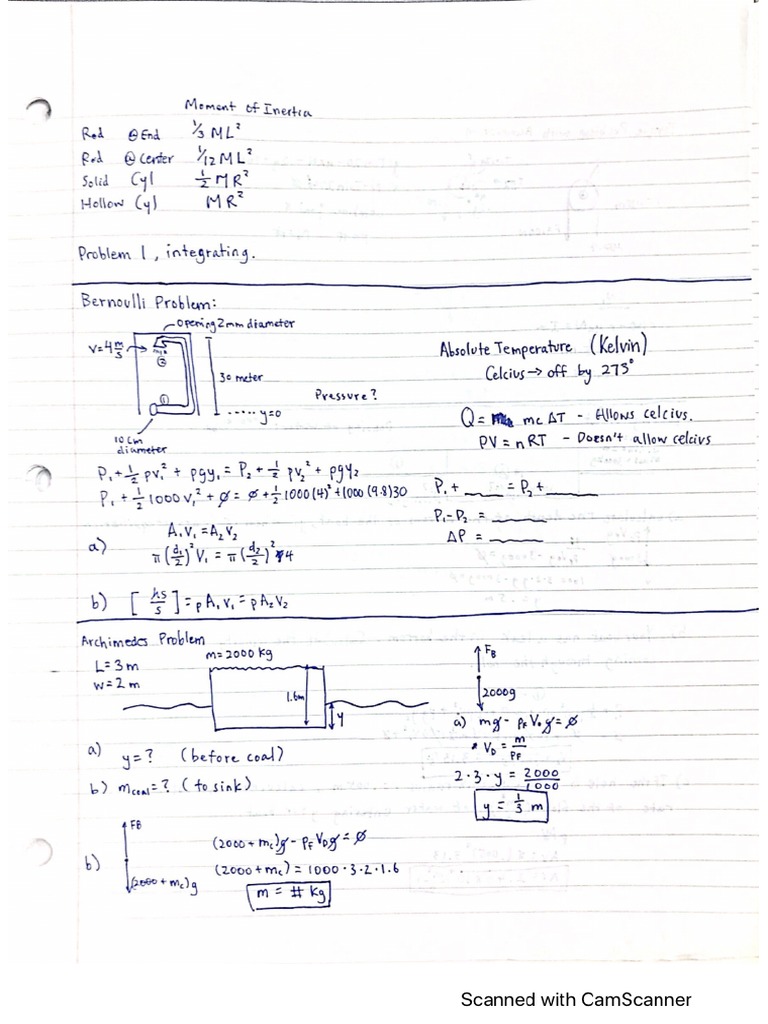 Moment of Inertia
Rod @ End 1/3 ML²
Rod @ Center 1/12 ML²
Solid Cyl 1/2 MR²
Hollow Cyl MR²
Problem 1, integrating.
Bernoulli Problem:
opening 2mm diameter
V=4 m/s
②
30 meter
Pressure?
①
y=0
10 cm
diameter
Absolute Temperature (Kelvin)
Celcius → off by 273°
Q = mc ΔT - Allows celcius.
PV = nRT - Doesn't allow celcius
P₁ + 1/2 ρv₁² + ρgy₁ = P₂ + 1/2 ρv₂² + ρgy₂
P₁ + 1/2 1000 v₁² + ø = ø + 1/2 1000 (4)² + 1000 (9.8) 30
P₁ + ____ = P₂ + ____
P₁ - P₂ = ____
ΔP = ____
a) A₁V₁ = A₂V₂
π(d₁/2)² V₁ = π(d₂/2)² 4
b) [ks/s] = ρA₁V₁ = ρA₂V₂
Archimedes Problem
L = 3 m
w = 2 m
m = 2000 kg
1.6m
y
F_B
2000g
a) y = ? (before coal)
b) m_coal = ? (to sink)
a) mg - ρ_F V_D g = ø
V_D = m/ρ_F
2·3·y = 2000/1000
y = 1/3 m
b) FB
(2000 + m_c)g
(2000 + m_c)g - ρ_F V_D g = ø
(2000 + m_c) = 1000·3·2·1.6
m = # kg
Scanned with CamScanner